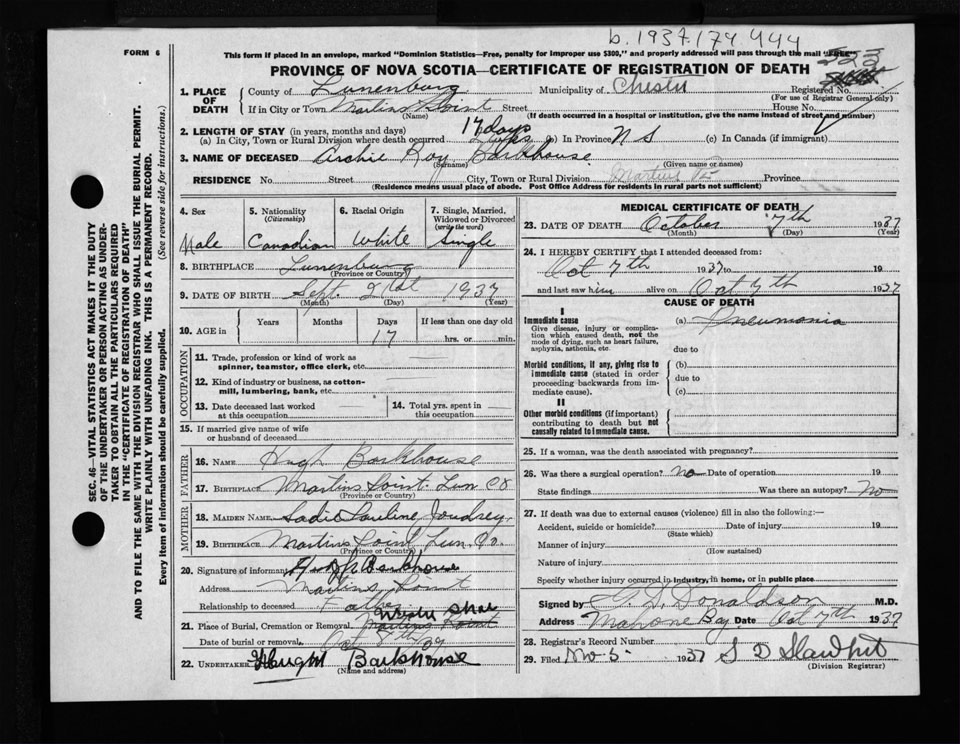 b. 1937 174 444
FORM 6
This form if placed in an envelope, marked "Dominion Statistics—Free, penalty for improper use $300," and properly addressed will pass through the mail "FREE"
523
PROVINCE OF NOVA SCOTIA—CERTIFICATE OF REGISTRATION OF DEATH
1. PLACE OF DEATH
County of Lunenburg Municipality of Chester Registered No.
(For use of Registrar General only)
If in City or Town Martins Point Street House No.
(Name) (If death occurred in a hospital or institution, give the name instead of street and number)
2. LENGTH OF STAY (in years, months and days) 17 days
(a) In City, Town or Rural Division where death occurred 17 days (b) In Province N S (c) In Canada (if immigrant)
3. NAME OF DECEASED Archie Roy Barkhouse
(Surname) (Given name or names)
RESIDENCE No. Street City, Town or Rural Division Martins Pt Province
(Residence means usual place of abode. Post Office Address for residents in rural parts not sufficient)
4. Sex Male
5. Nationality (Citizenship) Canadian
6. Racial Origin White
7. Single, Married, Widowed or Divorced (write the word) Single
8. BIRTHPLACE Lunenburg
(Province or Country)
9. DATE OF BIRTH Sept. 21st 1937
(Month) (Day) (Year)
10. AGE in Years Months Days If less than one day old
17 hrs. or min.
OCCUPATION
11. Trade, profession or kind of work as spinner, teamster, office clerk, etc.
12. Kind of industry or business, as cotton-mill, lumbering, bank, etc.
13. Date deceased last worked at this occupation
14. Total yrs. spent in this occupation
15. If married give name of wife or husband of deceased
FATHER
16. NAME Hugh Barkhouse
17. BIRTHPLACE Martins Point Lun Co
(Province or Country)
MOTHER
18. MAIDEN NAME Sadie Pauline Joudrey
19. BIRTHPLACE Martins Point, Lun. Co.
(Province or Country)
20. Signature of informant Hugh Barkhouse
Address Martins Point
Relationship to deceased Father
21. Place of Burial, Cremation or Removal Western Shore
Martins Point
Date of burial or removal Oct 8th 37
22. UNDERTAKER Haught Barkhouse
(Name and address)
MEDICAL CERTIFICATE OF DEATH
23. DATE OF DEATH October 7th 1937
(Month) (Day) (Year)
24. I HEREBY CERTIFY that I attended deceased from:
Oct 7th 1937 to 19
and last saw him alive on Oct 7th 1937
CAUSE OF DEATH
I
Immediate cause (a) Pneumonia
Give disease, injury or complication which caused death, not the mode of dying, such as heart failure, asphyxia, asthenia, etc.
due to
Morbid conditions, if any, giving rise to immediate cause (stated in order proceeding backwards from immediate cause).
(b)
due to
(c)
II
Other morbid conditions (if important) contributing to death but not causally related to immediate cause.
25. If a woman, was the death associated with pregnancy?
26. Was there a surgical operation? no Date of operation 19
State findings Was there an autopsy? No
27. If death was due to external causes (violence) fill in also the following:—
Accident, suicide or homicide? Date of injury 19
(State which)
Manner of injury
(How sustained)
Nature of injury
Specify whether injury occurred in industry, in home, or in public place
Signed by Donaldson M.D.
Address Mahone Bay Date Oct 7th 1937
28. Registrar's Record Number
29. Filed Nov 5 1937 S D
(Division Registrar)
SEC. 46—VITAL STATISTICS ACT MAKES IT THE DUTY
OF THE UNDERTAKER OR PERSON ACTING AS UNDER-
TAKER TO OBTAIN ALL THE PARTICULARS REQUIRED
IN THE "CERTIFICATE OF REGISTRATION OF DEATH"
AND TO FILE THE SAME WITH THE DIVISION REGISTRAR WHO SHALL ISSUE THE BURIAL PERMIT.
WRITE PLAINLY WITH UNFADING INK. THIS IS A PERMANENT RECORD.
Every item of information should be carefully supplied. (See reverse side for instructions.)